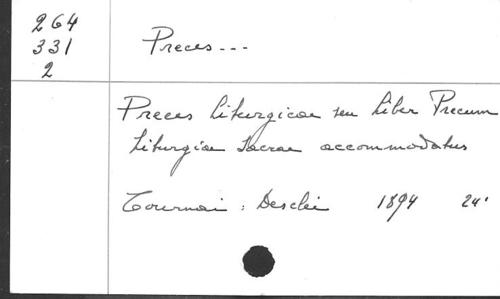 264
331
2
Preces...
Preces Liturgicae seu Liber Precum
Liturgiae Sacrae accommodatus
Tournai : Desclei 1894 24°